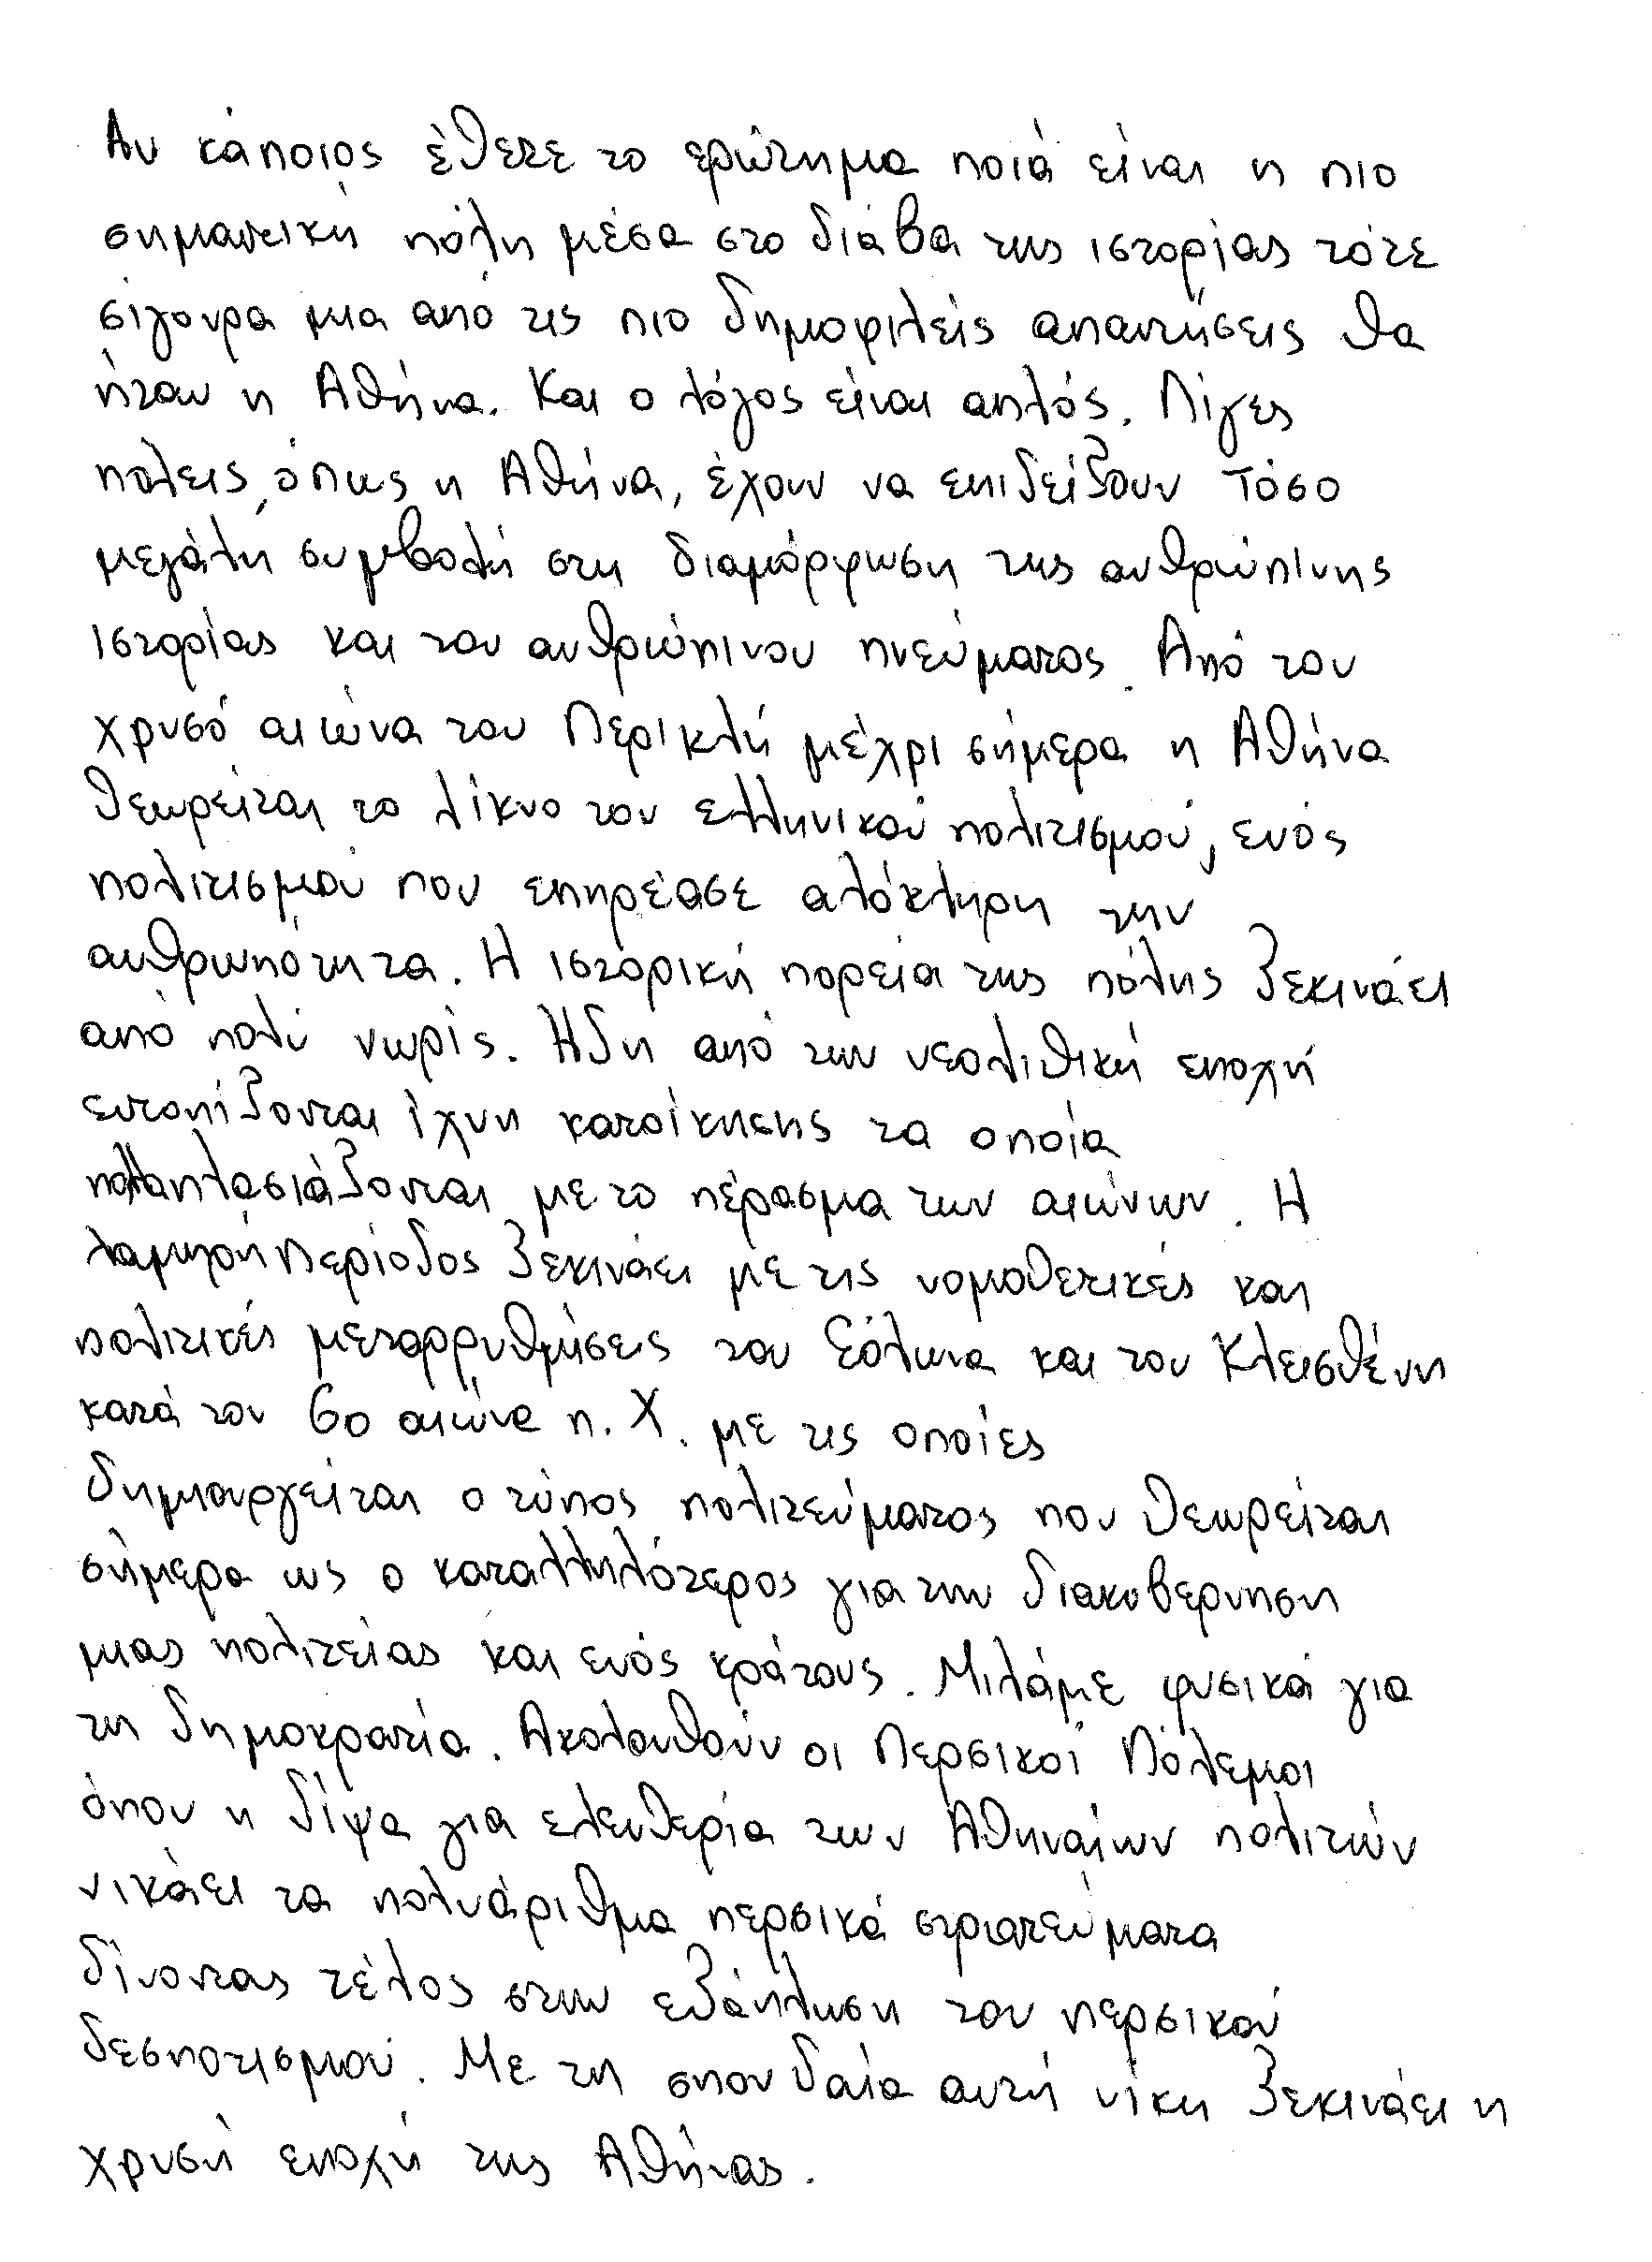 Αν κάποιος έθετε το ερώτημα ποιά είναι η πιο
σημαντική πόλη μέσα στο διάβα της ιστορίας τότε
σίγουρα μια από τις πιο δημοφιλείς απαντήσεις θα
ήταν η Αθήνα. Και ο λόγος είναι απλός. Λίγες
πόλεις, όπως η Αθήνα, έχουν να επιδείξουν τόσο
μεγάλη συμβολή στη διαμόρφωση της ανθρώπινης
ιστορίας και του ανθρώπινου πνεύματος. Από τον
χρυσό αιώνα του Περικλή μέχρι σήμερα η Αθήνα
θεωρείται το λίκνο του ελληνικού πολιτισμού, ενός
πολιτισμού που επηρέασε ολόκληρη την
ανθρωπότητα. Η ιστορική πορεία της πόλης ξεκινάει
από πολύ νωρίς. Ήδη από την νεολιθική εποχή
εντοπίζονται ίχνη κατοίκησης τα οποία
πολλαπλασιάζονται με το πέρασμα των αιώνων. Η
λαμπρή περίοδος ξεκινάει με τις νομοθετικές και
πολιτικές μεταρρυθμίσεις του Σόλωνα και του Κλεισθένη
κατά τον 6ο αιώνα π.Χ. με τις οποίες
δημιουργείται ο τύπος πολιτεύματος που θεωρείται
σήμερα ως ο καταλληλότερος για την διακυβέρνηση
μιας πολιτείας και ενός κράτους. Μιλάμε φυσικά για
τη δημοκρατία. Ακολουθούν οι Περσικοί Πόλεμοι
όπου η δίψα για ελευθερία των Αθηναίων πολιτών
νικάει τα πολυάριθμα περσικά στρατεύματα
δίνοντας τέλος στην εξάπλωση του περσικού
δεσποτισμού. Με τη σπουδαία αυτή νίκη ξεκινάει η
χρυσή εποχή της Αθήνας.